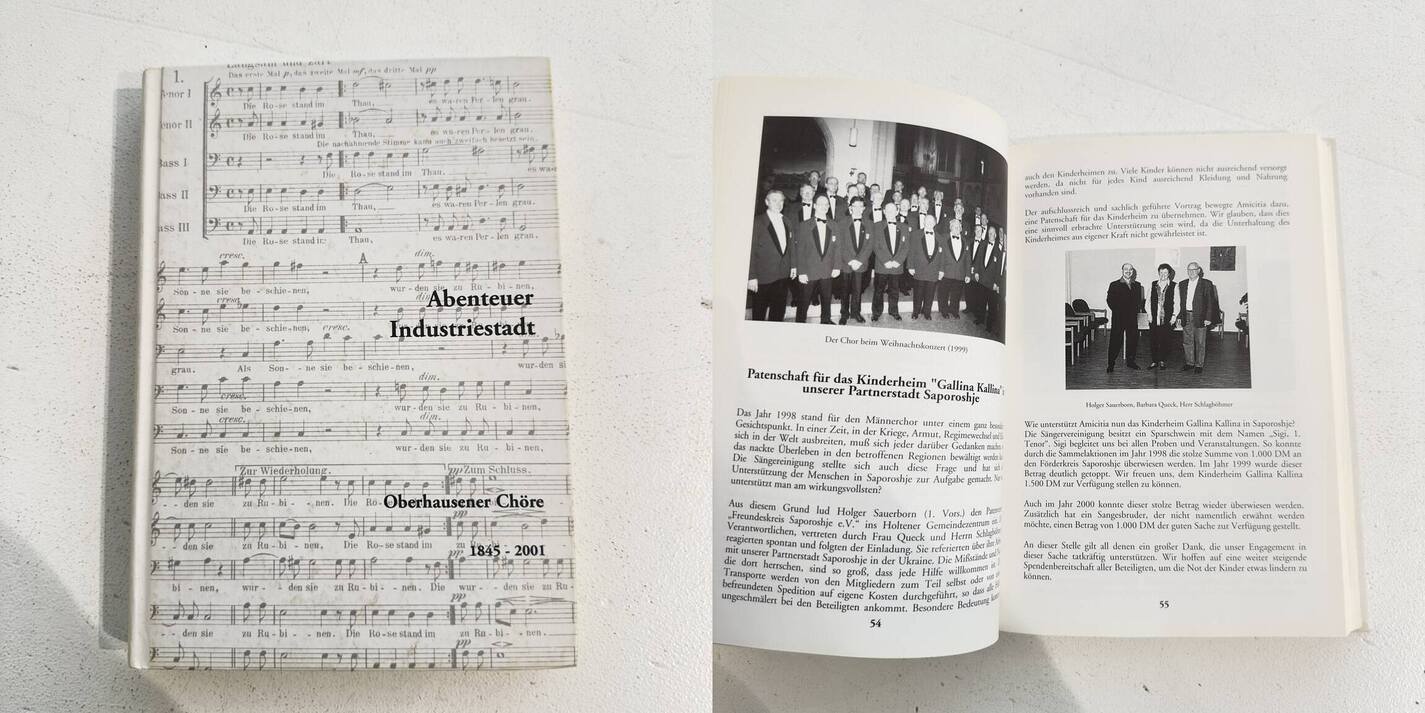 Langsam und zart
1.
Das erste Mal p, das zweite Mal mf, das dritte Mal pp
enor I
Die Ro-se stand im Thau, es wa-ren Per-len grau.
enor II
Die Ro-se stand im Thau, es wa-ren Per-len grau.
Die nachahmende Stimme kann auch zweifach besetzt sein.
Bass I
Die Ro-se stand im Thau. es wa-r
ass II
Die Ro-se stand im Thau, es wa-ren Per-len grau.
ass III
Die Ro-se stand im Thau, es wa-ren Per-len grau.
cresc. A dim.
Son-ne sie be-schie-nen, wur-den sie zu Ru-bi-nen,
cresc. dim.
Abenteuer
Industriestadt
Son-ne sie be-schie-nen,
cresc.
grau. Als Son-ne sie be-schie-nen, wur-den si
dim.
cresc.
Son-ne sie be-schie-nen, wur-den sie zu Ru-bi-nen,
cresc. dim.
Son-ne sie be-schie-nen, wur-den sie zu Ru-bi-nen,
Zur Wiederholung. pp Zum Schluss.
-den sie zu Ru-bi-nen. Die Ro-
Oberhausener Chöre
-den sie zu Ru-bi-nen, Die Ro-se stand im zu Ru-
pp
1845 - 2001
bi-nen, wur-den sie zu Ru-bi-nen. Die Ro-se stand im wur-den sie zu Ru-
pp
-den sie zu Ru-bi-nen. Die Ro-se stand im zu Ru-bi-nen.
pp
Der Chor beim Weihnachtskonzert (1999)
Patenschaft für das Kinderheim "Gallina Kallina"
unserer Partnerstadt Saporoshje
Das Jahr 1998 stand für den Männerchor unter einem ganz
Gesichtspunkt. In einer Zeit, in der Kriege, Armut, Regimewechsel und
sich in der Welt ausbreiten, muß sich jeder darüber Gedanken
das nackte Überleben in den betroffenen Regionen bewältigt werden
Die Sängereinigung stellte sich auch diese Frage und hat sich
Unterstützung der Menschen in Saporoshje zur Aufgabe gemacht.
unterstützt man am wirkungsvollsten?
Aus diesem Grund lud Holger Sauerborn (1. Vors.) den
„Freundeskreis Saporoshje e.V.“ ins Holtener Gemeindezentrum
Verantwortlichen, vertreten durch Frau Queck und Herrn
reagierten spontan und folgten der Einladung. Sie referierten über
mit unserer Partnerstadt Saporoshje in der Ukraine. Die Mißstände
die dort herrschen, sind so groß, dass jede Hilfe willkommen
Transporte werden von den Mitgliedern zum Teil selbst oder
befreundeten Spedition auf eigene Kosten durchgeführt, so dass
ungeschmälert bei den Beteiligten ankommt. Besondere Bedeutung
54
auch den Kinderheimen zu. Viele Kinder können nicht ausreichend versorgt
werden, da nicht für jedes Kind ausreichend Kleidung und Nahrung
vorhanden sind.
Der aufschlussreich und sachlich geführte Vortrag bewegte Amicitia dazu,
eine Patenschaft für das Kinderheim zu übernehmen. Wir glauben, dass dies
eine sinnvoll erbrachte Unterstützung sein wird, da die Unterhaltung des
Kinderheimes aus eigener Kraft nicht gewährleistet ist.
Holger Sauerborn, Barbara Queck, Herr Schlagböhmer
Wie unterstützt Amicitia nun das Kinderheim Gallina Kallina in Saporoshje?
Die Sängervereinigung besitzt ein Sparschwein mit dem Namen „Sigi, 1.
Tenor“. Sigi begleitet uns bei allen Proben und Veranstaltungen. So konnte
durch die Sammelaktionen im Jahr 1998 die stolze Summe von 1.000 DM an
den Förderkreis Saporoshje überwiesen werden. Im Jahr 1999 wurde dieser
Betrag deutlich getoppt. Wir freuen uns, dem Kinderheim Gallina Kallina
1.500 DM zur Verfügung stellen zu können.
Auch im Jahr 2000 konnte dieser stolze Betrag wieder überwiesen werden.
Zusätzlich hat ein Sangesbruder, der nicht namentlich erwähnt werden
möchte, einen Betrag von 1.000 DM der guten Sache zur Verfügung gestellt.
An dieser Stelle gilt all denen ein großer Dank, die unser Engagement in
dieser Sache tatkräftig unterstützen. Wir hoffen auf eine weiter steigende
Spendenbereitschaft aller Beteiligten, um die Not der Kinder etwas lindern zu
können.
55